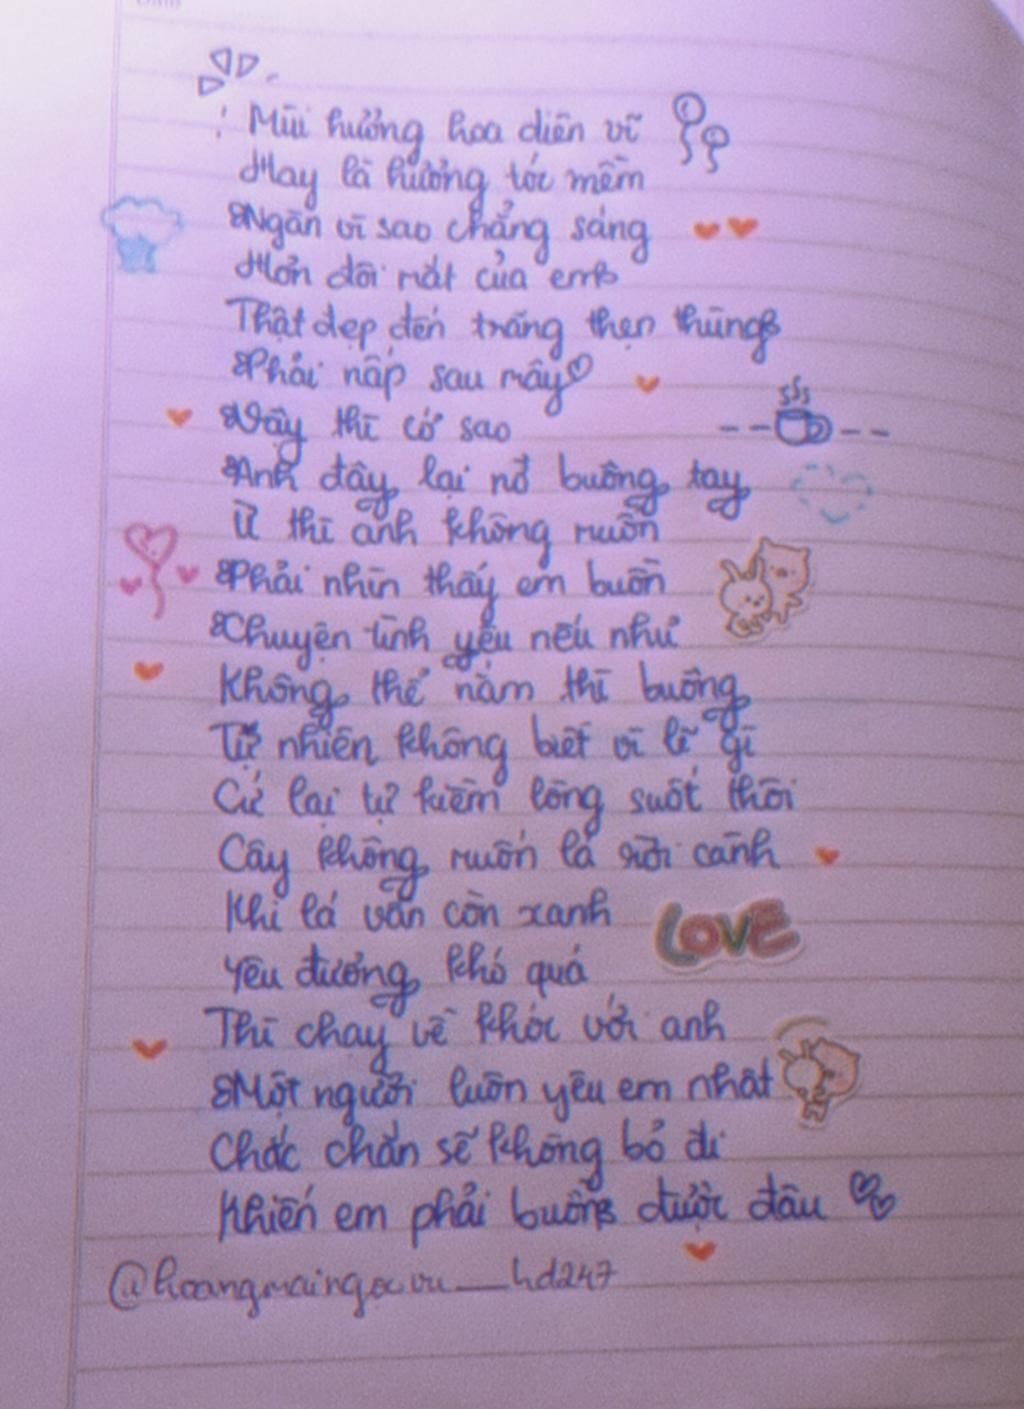 Mùi hương hoa diên vĩ
Hay là hương tóc mềm
Ngàn vì sao chẳng sáng
Hơn đôi mắt của em
Thật đẹp đến trăng thẹn thùng
Phải nấp sau mây
Vậy thì cớ sao
Anh đây lại nỡ buông tay
Ừ thì anh không muốn
Phải nhìn thấy em buồn
Chuyện tình yêu nếu như
Không thể nắm thì buông
Tự nhiên không biết vì lẽ gì
Cứ lại tự kiềm lòng suốt thôi
Cây không muốn lá rời cành
Khi lá vẫn còn xanh
Yêu đương khó quá
Thì chạy về khóc với anh
Một người luôn yêu em nhất
Chắc chắn sẽ không bỏ đi
Khiến em phải buồn được đâu
LOVE
@hoangmaingocvu__hd247